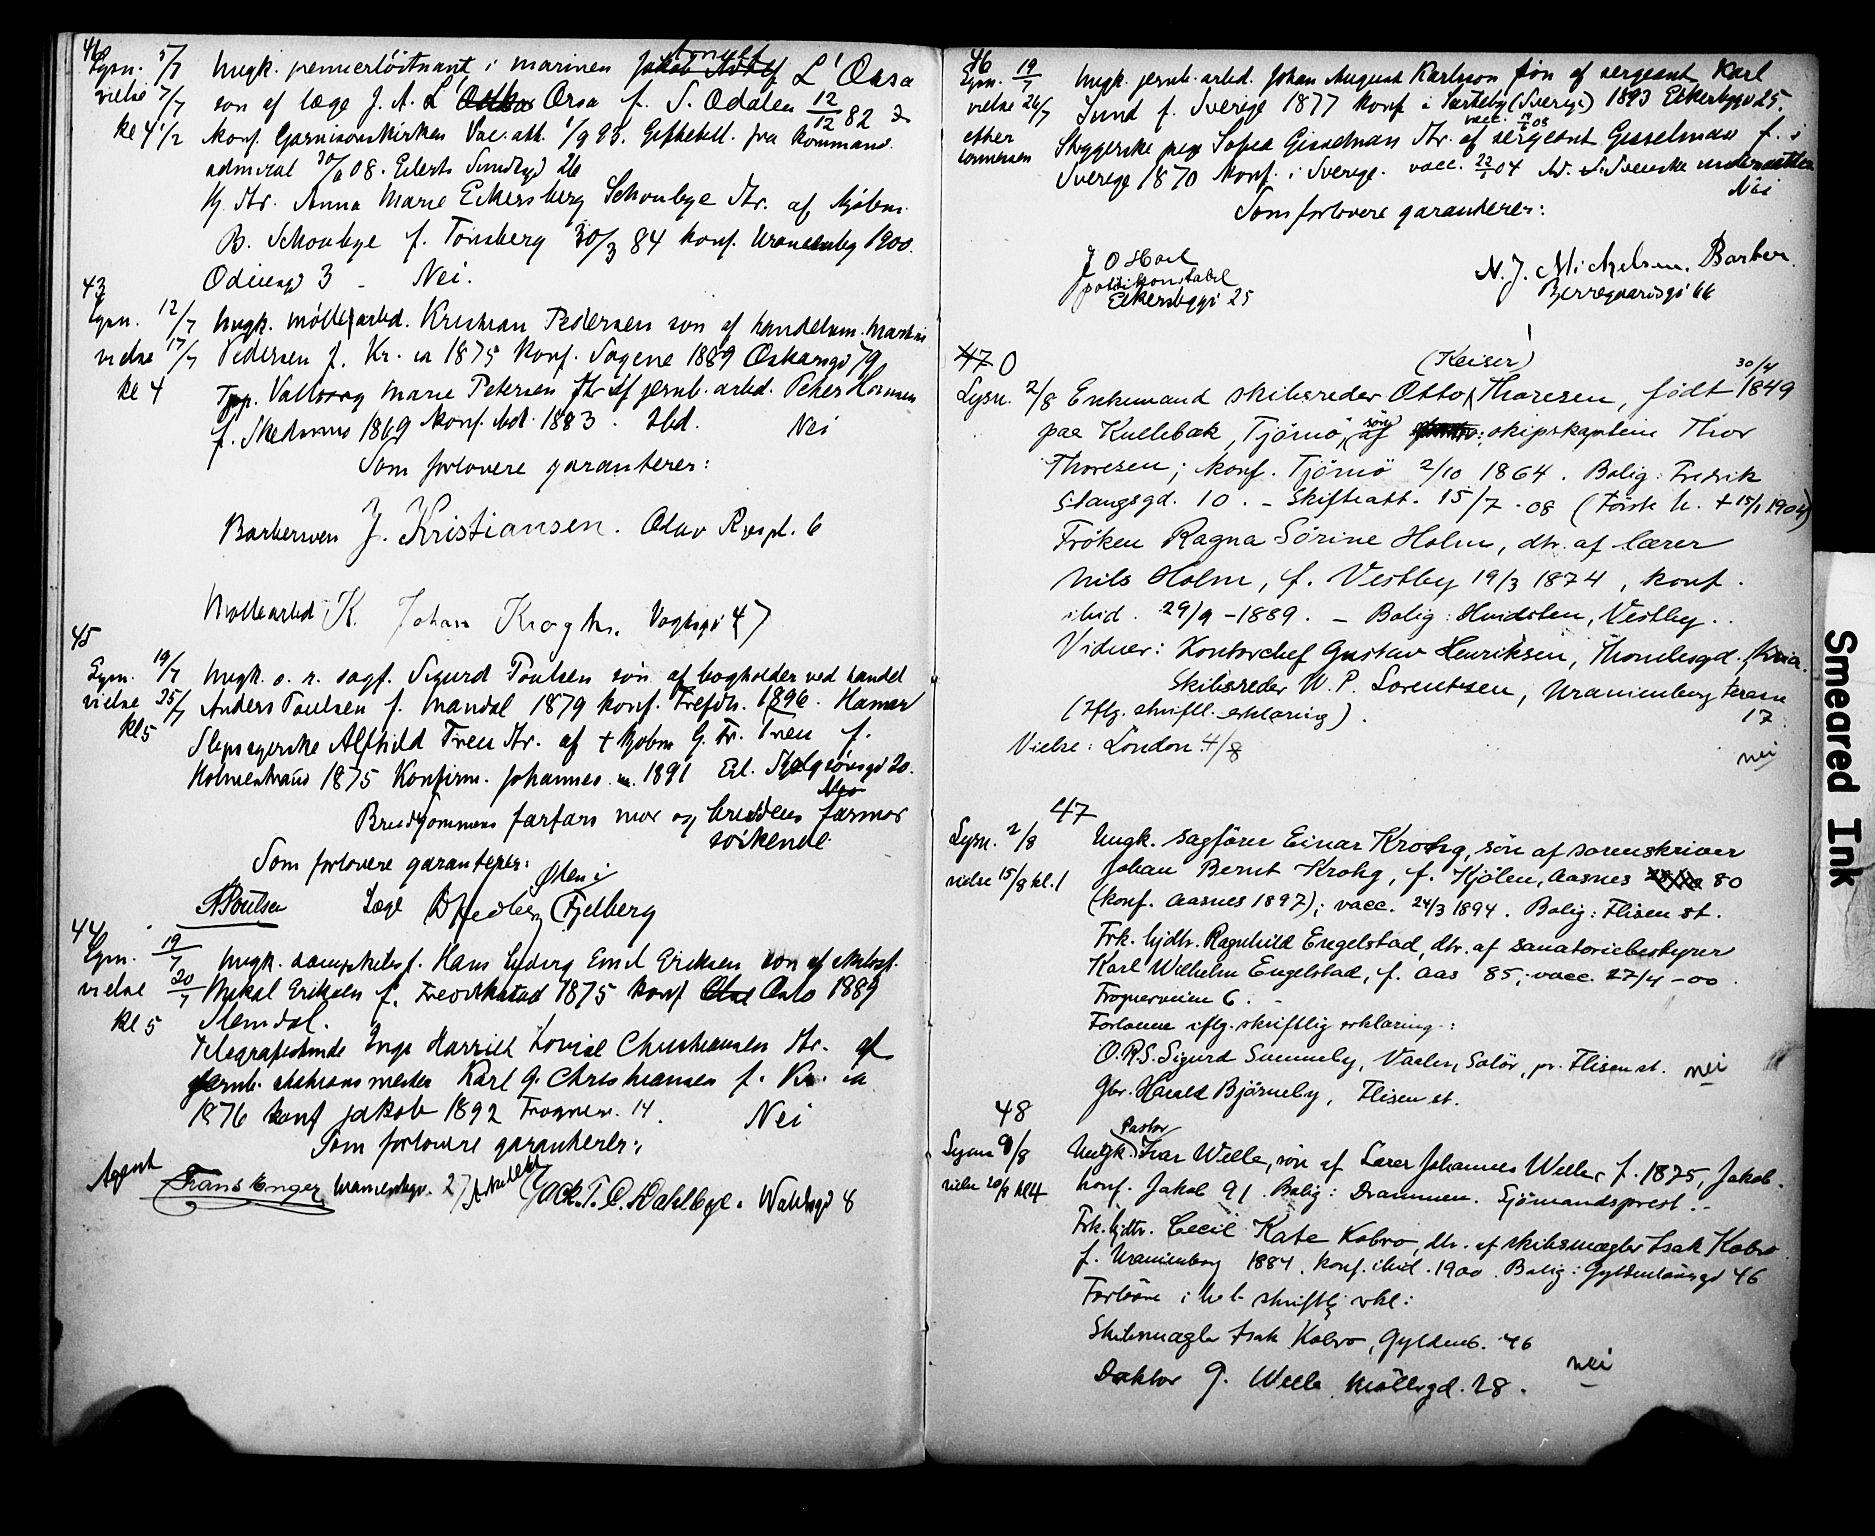 Lysn. 5/7 Ungk. premierløitnant i marinen L'Orsa
vielse 7/7 søn af læge J. A. L Orsa f. S. Odalen 12/12 82
kl 4 1/2 konf. Garnisonskirken Vac. att. 1/9 83. fra Kommand.
admiral 08. Eilert Sundtsgd 26
Hj. dtr. Anna Marie Eckersberg Schoubye dtr. af kjøbm.
B. Schoubye f. Tønsberg 30/3 84 konf. Uranienbg 1900.
Odinsgd 3 - Nei.
43
Lysn. 12/7 Ungk. møllearbd. Kristian Pedersen søn af handelsm. Martin
vielse 17/7 Pedersen f. Kr. ia 1875 konf. Sagene 1889 Oskarsgd 79
kl 4 Valborg Marie Petersen dtr af jernb. arbd. Peter
f. Skedsmo 1869 konf. 1883. Ibd. Nei
Som forlovere garanterer:
Barbersven J. Kristiansen. Olav Ryespl. 6
Møllearbd K. Johan Krogh. Vogtsgd 47
45
Lysn. 19/7 Ungk. o. r. sagf. Sigurd Poulsen søn af bogholder ved handel
vielse 25/7 Anders Poulsen f. Mandal 1879 konf. Trefdh. 1896. Hamar
kl 5 Alfhild Tven dtr. af + kjøbm G. Fr. Tven f.
Holmestrand 1875 Konfirm. Johannes 1891 20.
Nei
Brudgommens farfars mor og brudens farmor
søskende
Som forlovere garanterer:
Poulsen Læge (Fjelberg
44
Lysn. 19/7 Ungk. Hans Lyderg Emil Eriksen søn af
vielse 20/7 Mikal Eriksen f. Fredrikstad 1875 konf Oslo 1889
kl 5 Slemdal.
Telegrafistinde Inga Harriet Lovise Christiansen dtr. af
jernb. stationsmester Karl G. Christiansen f. Kr. ia
1876 konf Jakob 1892 Frognerv. 14. Nei
Som forlovere garanterer:
Agent Frans Enger Uranienbgv. 27 T. O. Dahlbye. Waldsgd 8
46
Lysn. 19/7 Ungk. jernb. arbd. Johan August Karlsson søn af sergeant Karl
vielse 26/7 Lund f. Sverige 1877 konf i (Sverige) 1893 Eckersbggd 25.
efter Sofia Gisselman dtr. af sergeant Gisselman f. i
Sverige 1870 konf. i Sverige. vacc. 04 Svenske
Nei
Som forlovere garanterer:
J O Hoel N. J. Michelsen. Barber
politikonstabel Berregaardsgd 66
Eckersbggd 25
47 0 (Keiser) 30/4
Lysn. 2/8 Enkemand skibsreder Otto Thoresen, født 1849
paa Kullebæk, Tjømø, søn af skipskaptein Thor
Thoresen; konf. Tjømø 2/10 1864. Bolig: Fredrik
Stangsgd. 10. - Skifteatt. 15/7 - 08 (Første h. + 15/1 1904)
Frøken Ragna Sørine Holm, dtr. af lærer
Nils Holm, f. Vestby 19/3 1874, konf.
ibid. 29/9 - 1889. - Bolig: Hvidsten, Vestby.
Vidner: Kontorchef Gustav Henriksen, Thomlesgd. Kria.
Skibsreder W. P. Lorentsen, Uranienborg terasse
17.
(Iflg. skriftl. erklæring).
Vielse: London 4/8
nei
47
Lysn. 2/8 Ungk. sagfører Einar Krohg, søn af sorenskriver
vielse 15/8 kl. 1 Johan Bernt Krohg, f. Kjølen, Aasnes 80
(konf. Aasnes 1897); vacc. 24/3 1894. Bolig: Flisen st.
Frk. hjdtr. Ragnhild Engelstad, dtr. af sanatoriebestyrer
Karl Wilhelm Engelstad, f. Aas 85; vacc. 27/4 - 00.
Frognerveien 6. -
Forlovere iflg. skriftlig erklæring:
O.R.S. Sigurd Sunneby, Vaaler, Solør, pr. Flisen st. nei
Gbr. Harald Bjørneby, Flisen st.
48
Pastor
Lysn 9/8 Ungk. Ivar Welle, søn af Lærer Johannes Welle, f. 1875, Jakob.
vielse 20/8 kl 4 konf. Jakob 91. Bolig: Drammen. Sjømandsprest. -
Frk. hjdtr. Cecil Kate Kobro, dtr. af skibsmægler Isak Kobro
f. Uranienborg 1884. konf. ibid. 1900. Bolig: Gyldenløvesgd 46
Forlovere i h. t. skriftlig erkl:
Skibsmægler Isak Kobro, Gyldenl. 46
Doktor J. Welle, Møllergd. 28. nei
Smeared Ink